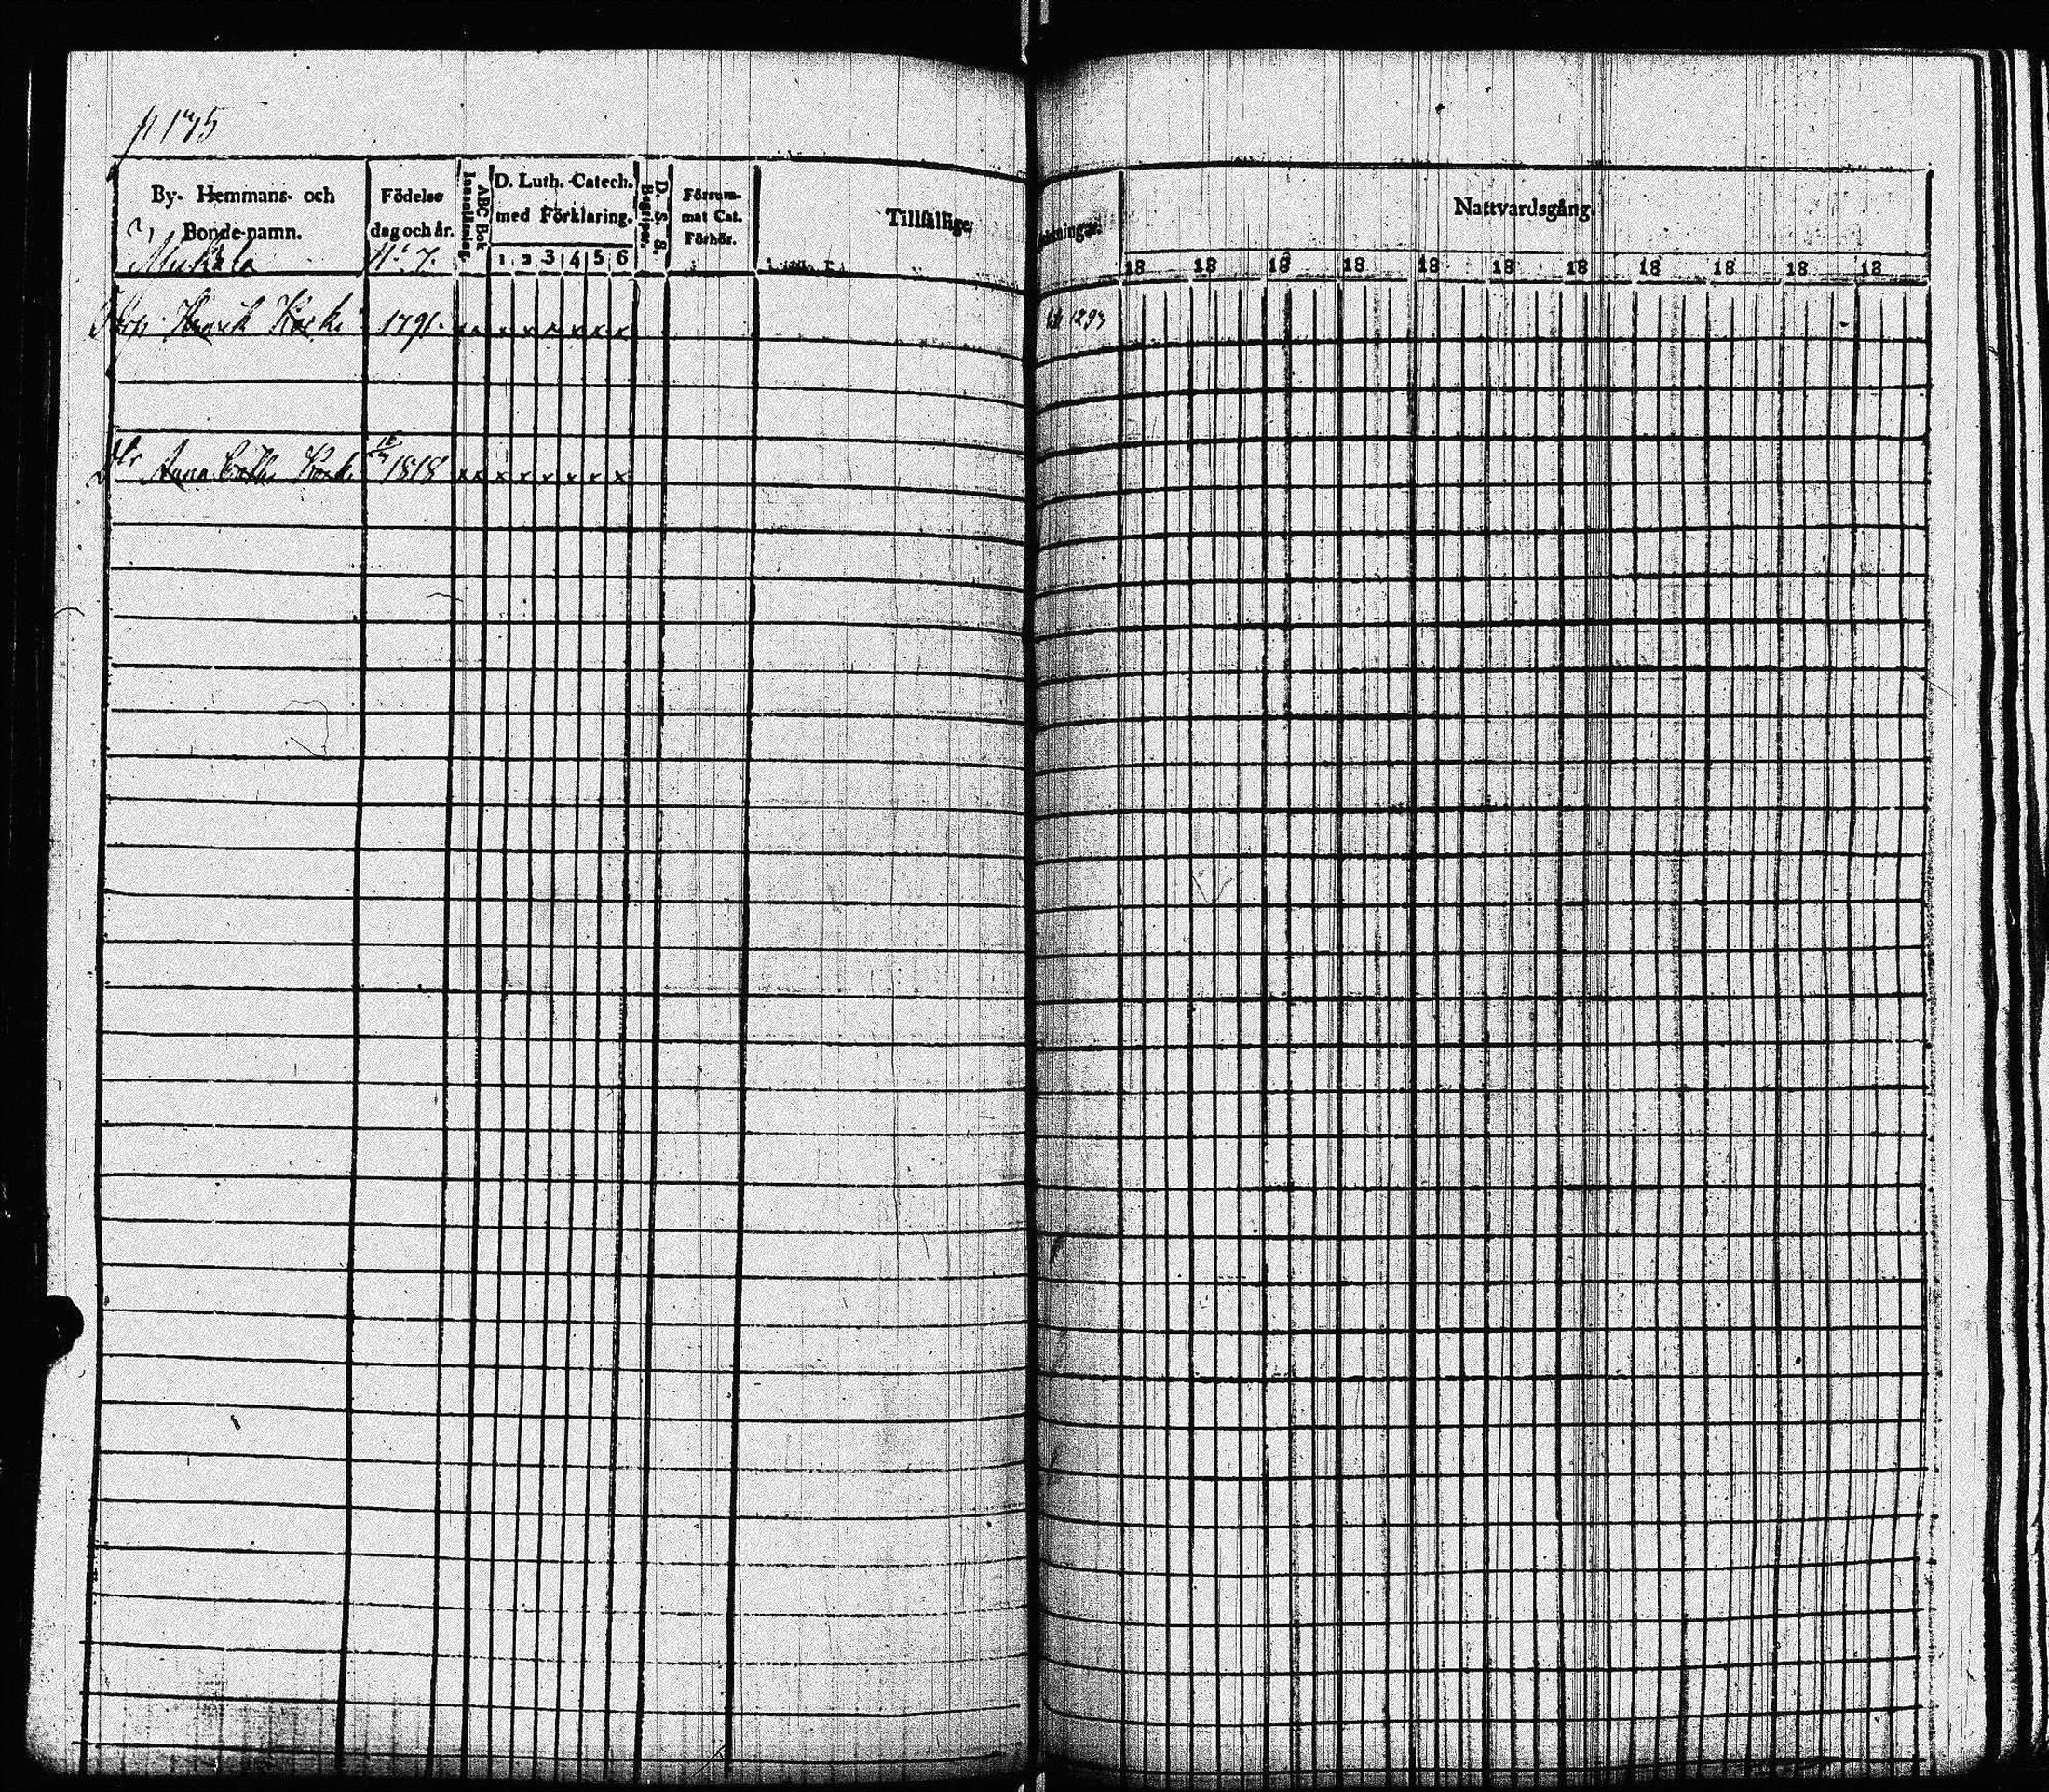 p 175
By- Hemmans- och
Bonde-namn.
Födelse
dag och år.
Innanläsning.
ABC Bok
D. Luth. Catech.
med Förklaring.
1 2 3 4 5 6
D. S. S.
Begripr.
Försum-
mat Cat.
Förhör.
Tillfällige
Nattvardsgång.
18 18 18 18 18 18 18 18 18 18 18
Mukkala No 7.
Henrik Koski 1791. x x x x x x x x
Dtr Anna Cath. Koski 1818 x x x x x x x x
1293